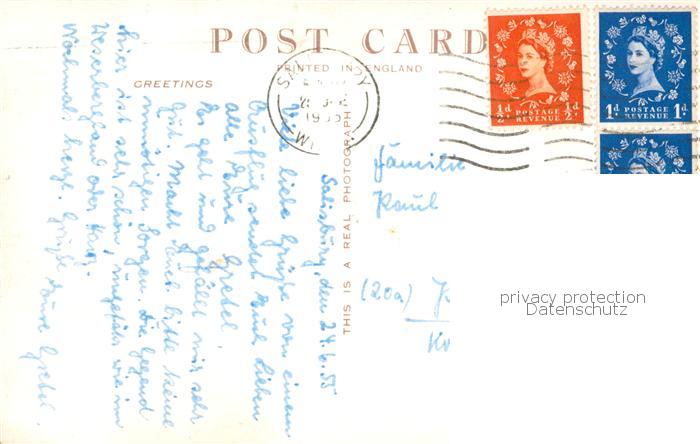 POST CARD
PRINTED IN ENGLAND
GREETINGS
THIS IS A REAL PHOTOGRAPH
½d ½d
POSTAGE
REVENUE
1d 1d
POSTAGE
REVENUE
SALISBURY
WILTS
Salisbury, den 24.6.55
Viele liebe Grüße von einem
Ausflug sendet Euch Lieben
alle Eure Gretel.
Es geht und gefällt mir sehr
gut. Macht Euch bitte keine
unnötigen Sorgen. Die Gegend
hier ist sehr schön, ungefähr wie im
Weserbergland oder Harz.
Nochmals herzl. Grüße Eure Gretel.
Familie
Paul
(20a)
privacy protection
Datenschutz